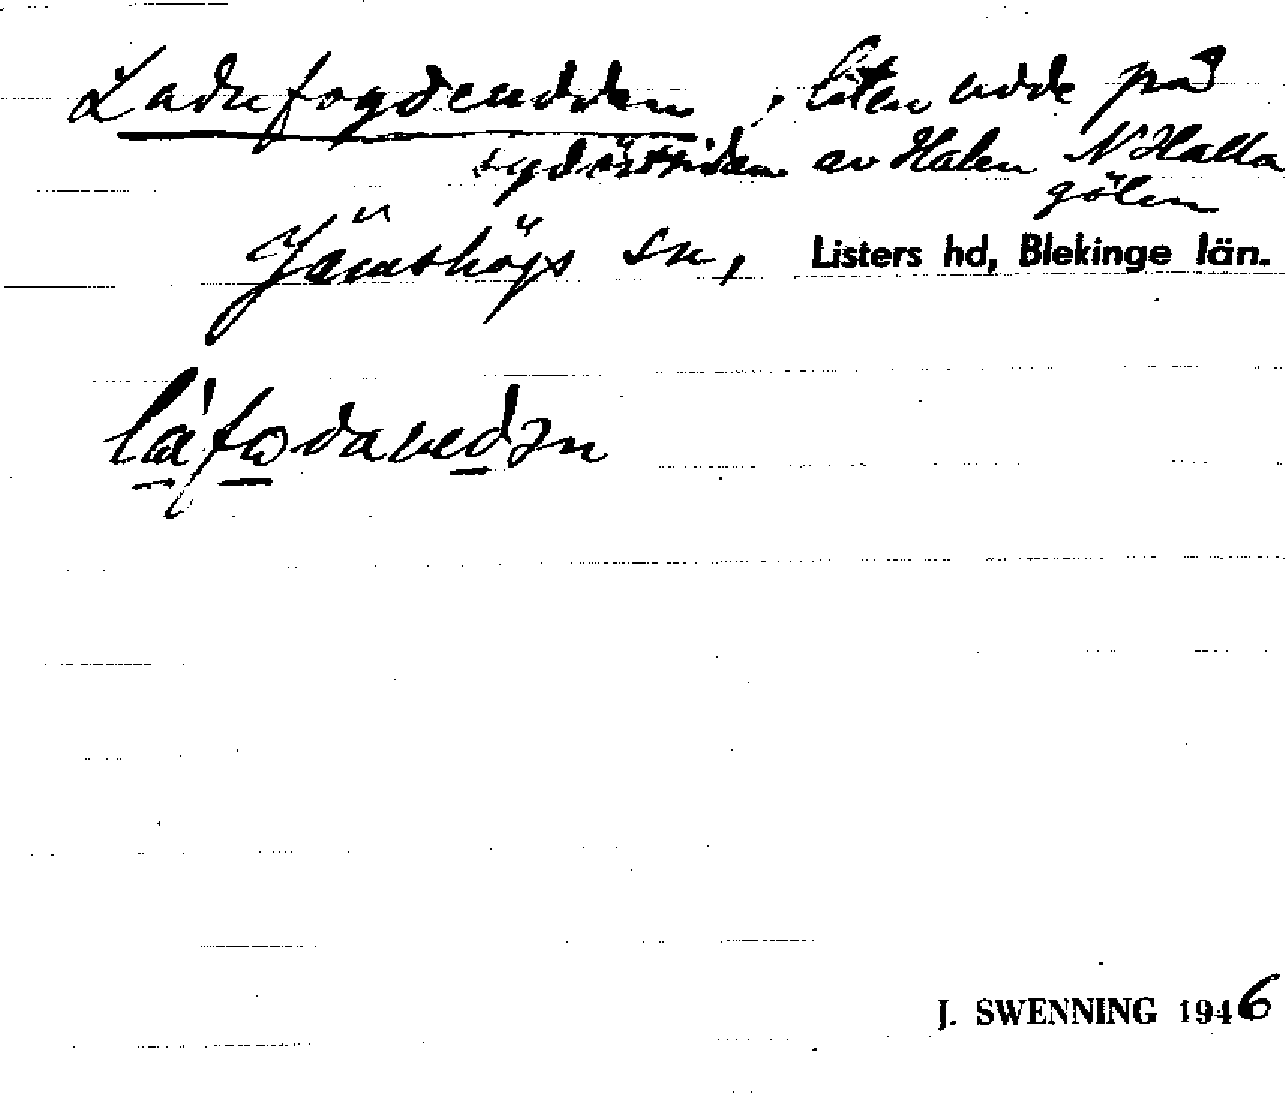 Ladufogdeudden, liten udde på
sydöstsidan av Halen N Halla
gölen
Jämshögs sn, Listers hd, Blekinge län.
J. SWENNING 1946